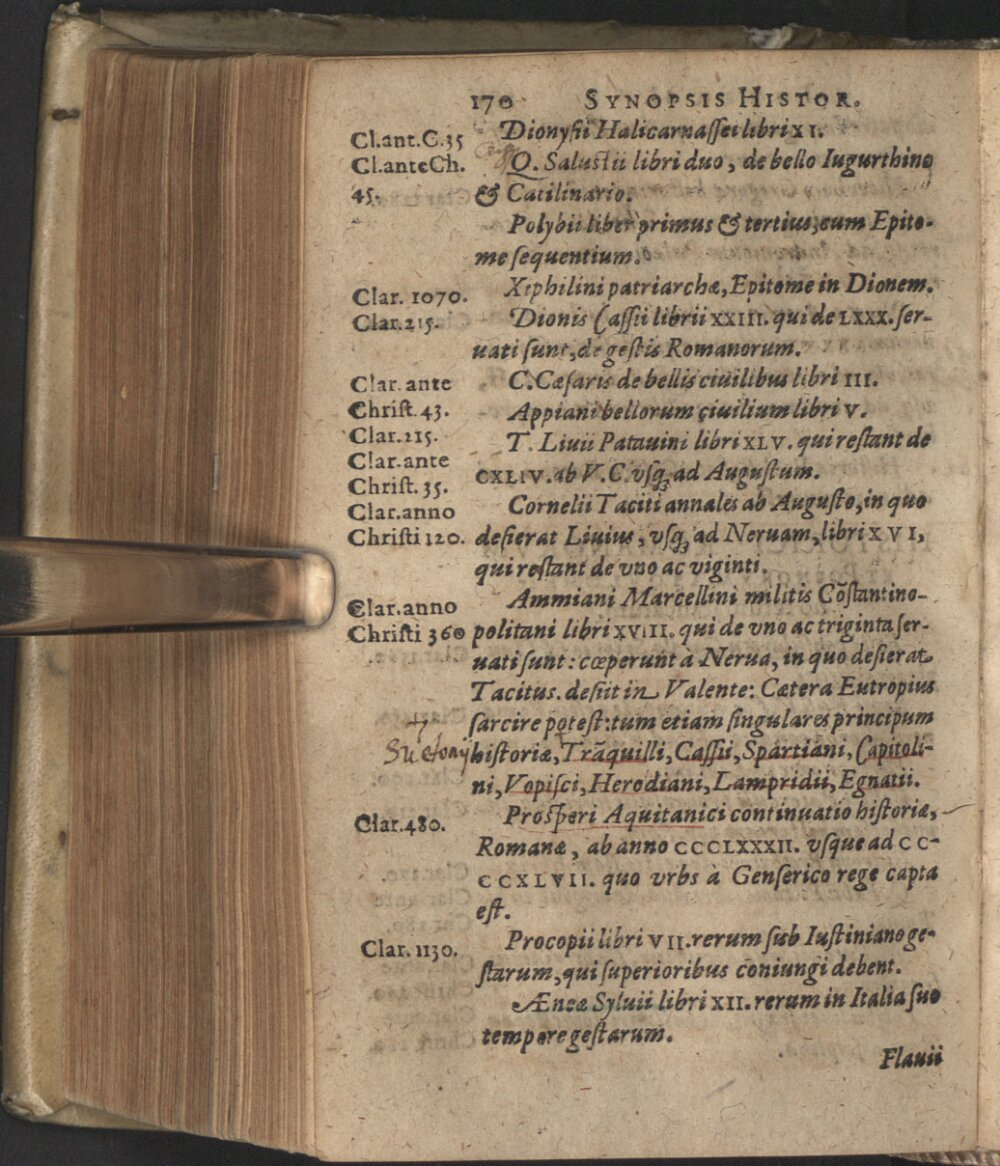 170 SYNOPSIS HISTOR.
Cl.ant.C.35 Dionysii Halicarnassei libri XI.
Cl.anteCh. Q. Salustii libri duo, de bello Iugurthino
45. & Catilinario.
Polybii liber primus & tertius, cum Epito-
me sequentium.
Clar. 1070. Xiphilini patriarchæ, Epitome in Dionem.
Clar.215. Dionis Cassii librii XXIII. qui de LXXX. ser-
uati sunt, de gestis Romanorum.
Clar. ante C. Cæsaris de bellis ciuilibus libri III.
Christ. 43. Appiani bellorum ciuilium libri V.
Clar.215. T. Liuii Patauini libri XLV. qui restant de
Clar.ante CXLIV. ab V.C. vsq; ad Augustum.
Christ. 35.
Clar.anno Cornelii Taciti annales ab Augusto, in quo
Christi 120. desierat Liuius, vsq; ad Neruam, libri XVI,
qui restant de vno ac viginti.
Clar.anno Ammiani Marcellini militis Cõstantino-
Christi 360 politani libri XVIII. qui de vno ac triginta ser-
uati sunt: cœperunt à Nerua, in quo desierat
Tacitus. desiit in Valente: Cætera Eutropius
sarcire potest: tum etiam singulares principum
Suetonij historiæ, Trãquilli, Cassii, Spartiani, Capitoli-
ni, Vopisci, Herodiani, Lampridii, Egnatii.
Clar.480. Prosperi Aquitanici continuatio historiæ,
Romanæ, ab anno CCCLXXXII. vsque ad CC-
CCXLVII. quo vrbs à Genserico rege capta
est.
Clar. 1130. Procopii libri VII. rerum sub Iustiniano ge-
starum, qui superioribus coniungi debent.
Æneæ Syluii libri XII. rerum in Italia suo
tempore gestarum.
Flauii